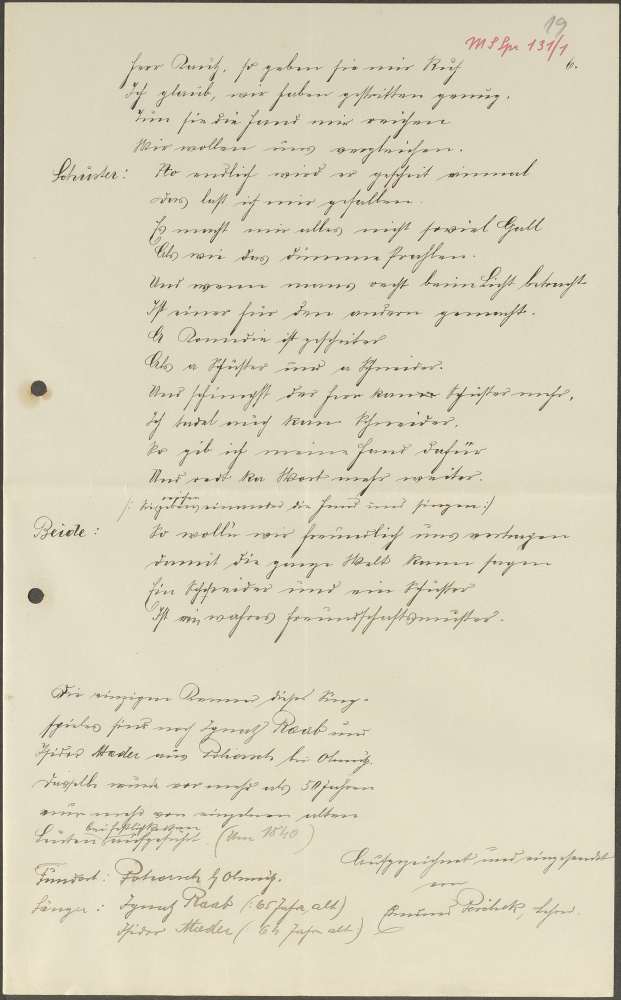 19
MS Spr 131/1
6.
Herr Kautz, so geben sie mir Ruh
Ich glaub, wir haben gestritten genug.
Nun sie die Hand mir reichen
Wir wollen uns vergleichen.
Schuster: No endlich wird er gescheit einmal
Das lass ich mir gefallen.
Es macht mir alles nicht soviel Gall
Als wie das dumme Prahlen.
Und wenn mans recht beim Licht betracht
Ist einer für den andern gemacht.
A Komedie ist gescheiter
Als a Schuster und a Schneider.
Und schimpft der Herr kan Schuster mehr,
Ich tadel auch kan Schneider.
So gib ich meine Hand dafür
Und redt ka Wort mehr weiter.
/: reichen einander die Hand und singen :/
Beide: So woll'n wir freundlich uns vertragen
damit die ganze Welt kann sagen
Ein Schneider und ein Schuster
Ist ein wahres Freundschaftsmuster.
Die einzigen Kenner dieses Sing-
spieles sind noch Ignatz Raab und
Isidor Mader aus bei Olmütz.
Dasselbe wurde vor mehr als 50 Jahren
nur mehr von einzelnen alten
bei Festlichkeiten
Leuten aufgeführt. (Um 1840)
Aufgezeichnet und eingesendet
von
Fundort: b/ Olmütz.
Sänger: Ignatz Raab (: 65 Jahre alt)
Lehrer.
Isidor Mader ( 64 Jahre alt)